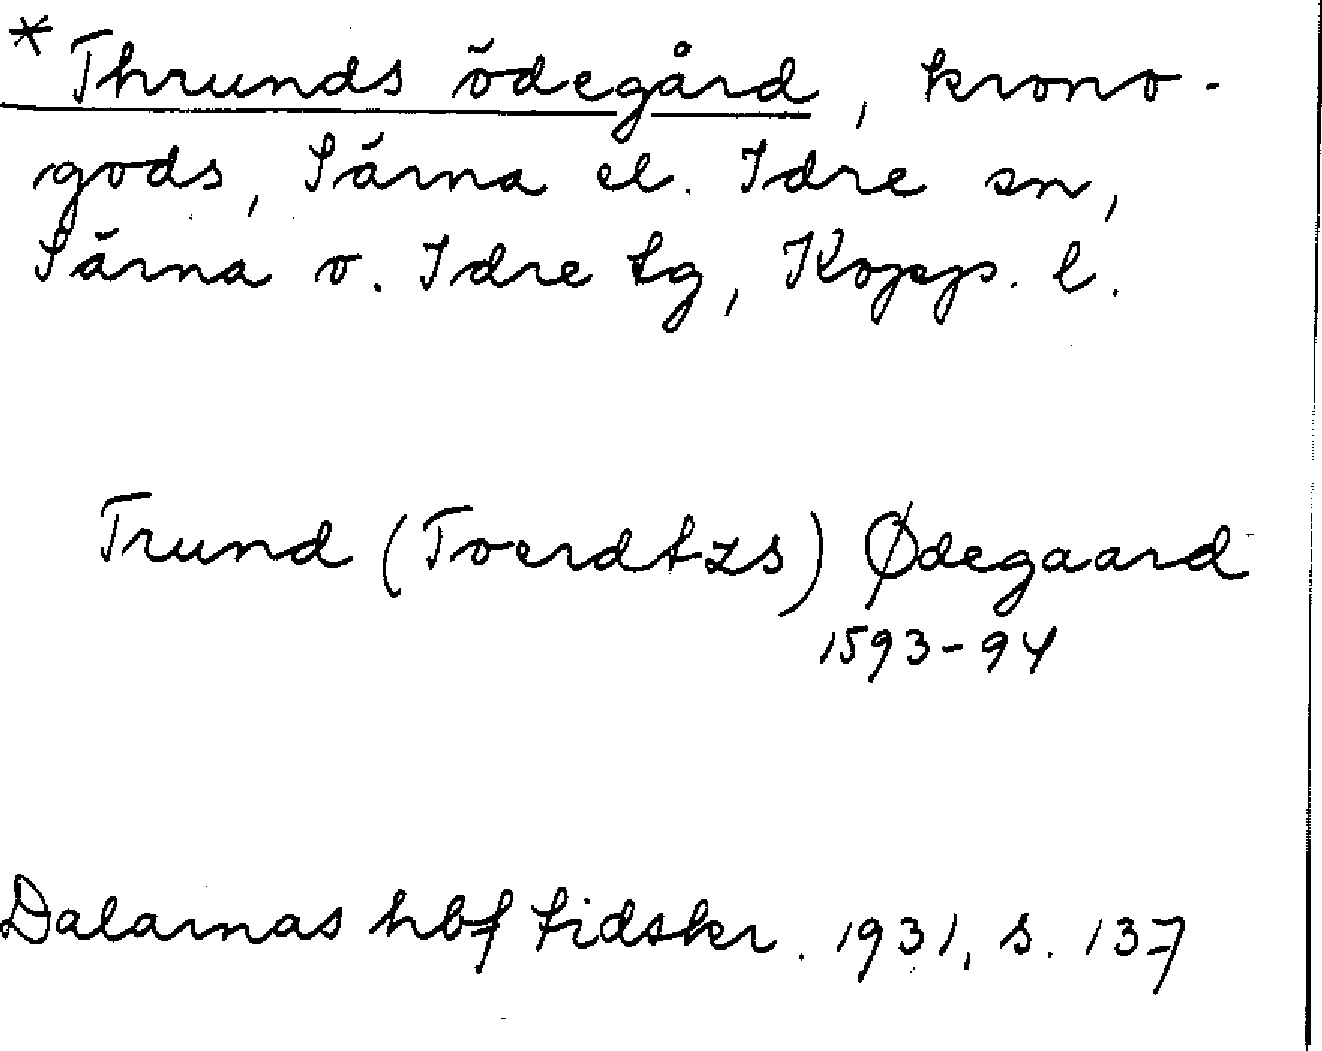 * Thrunds ödegård, krono-
gods, Särna el. Idre sn,
Särna o. Idre tg, Kopp. l.
Trund (Toerdtzs) Ødegaard
1593-94
Dalarnas hbf tidskr. 1931, s. 137